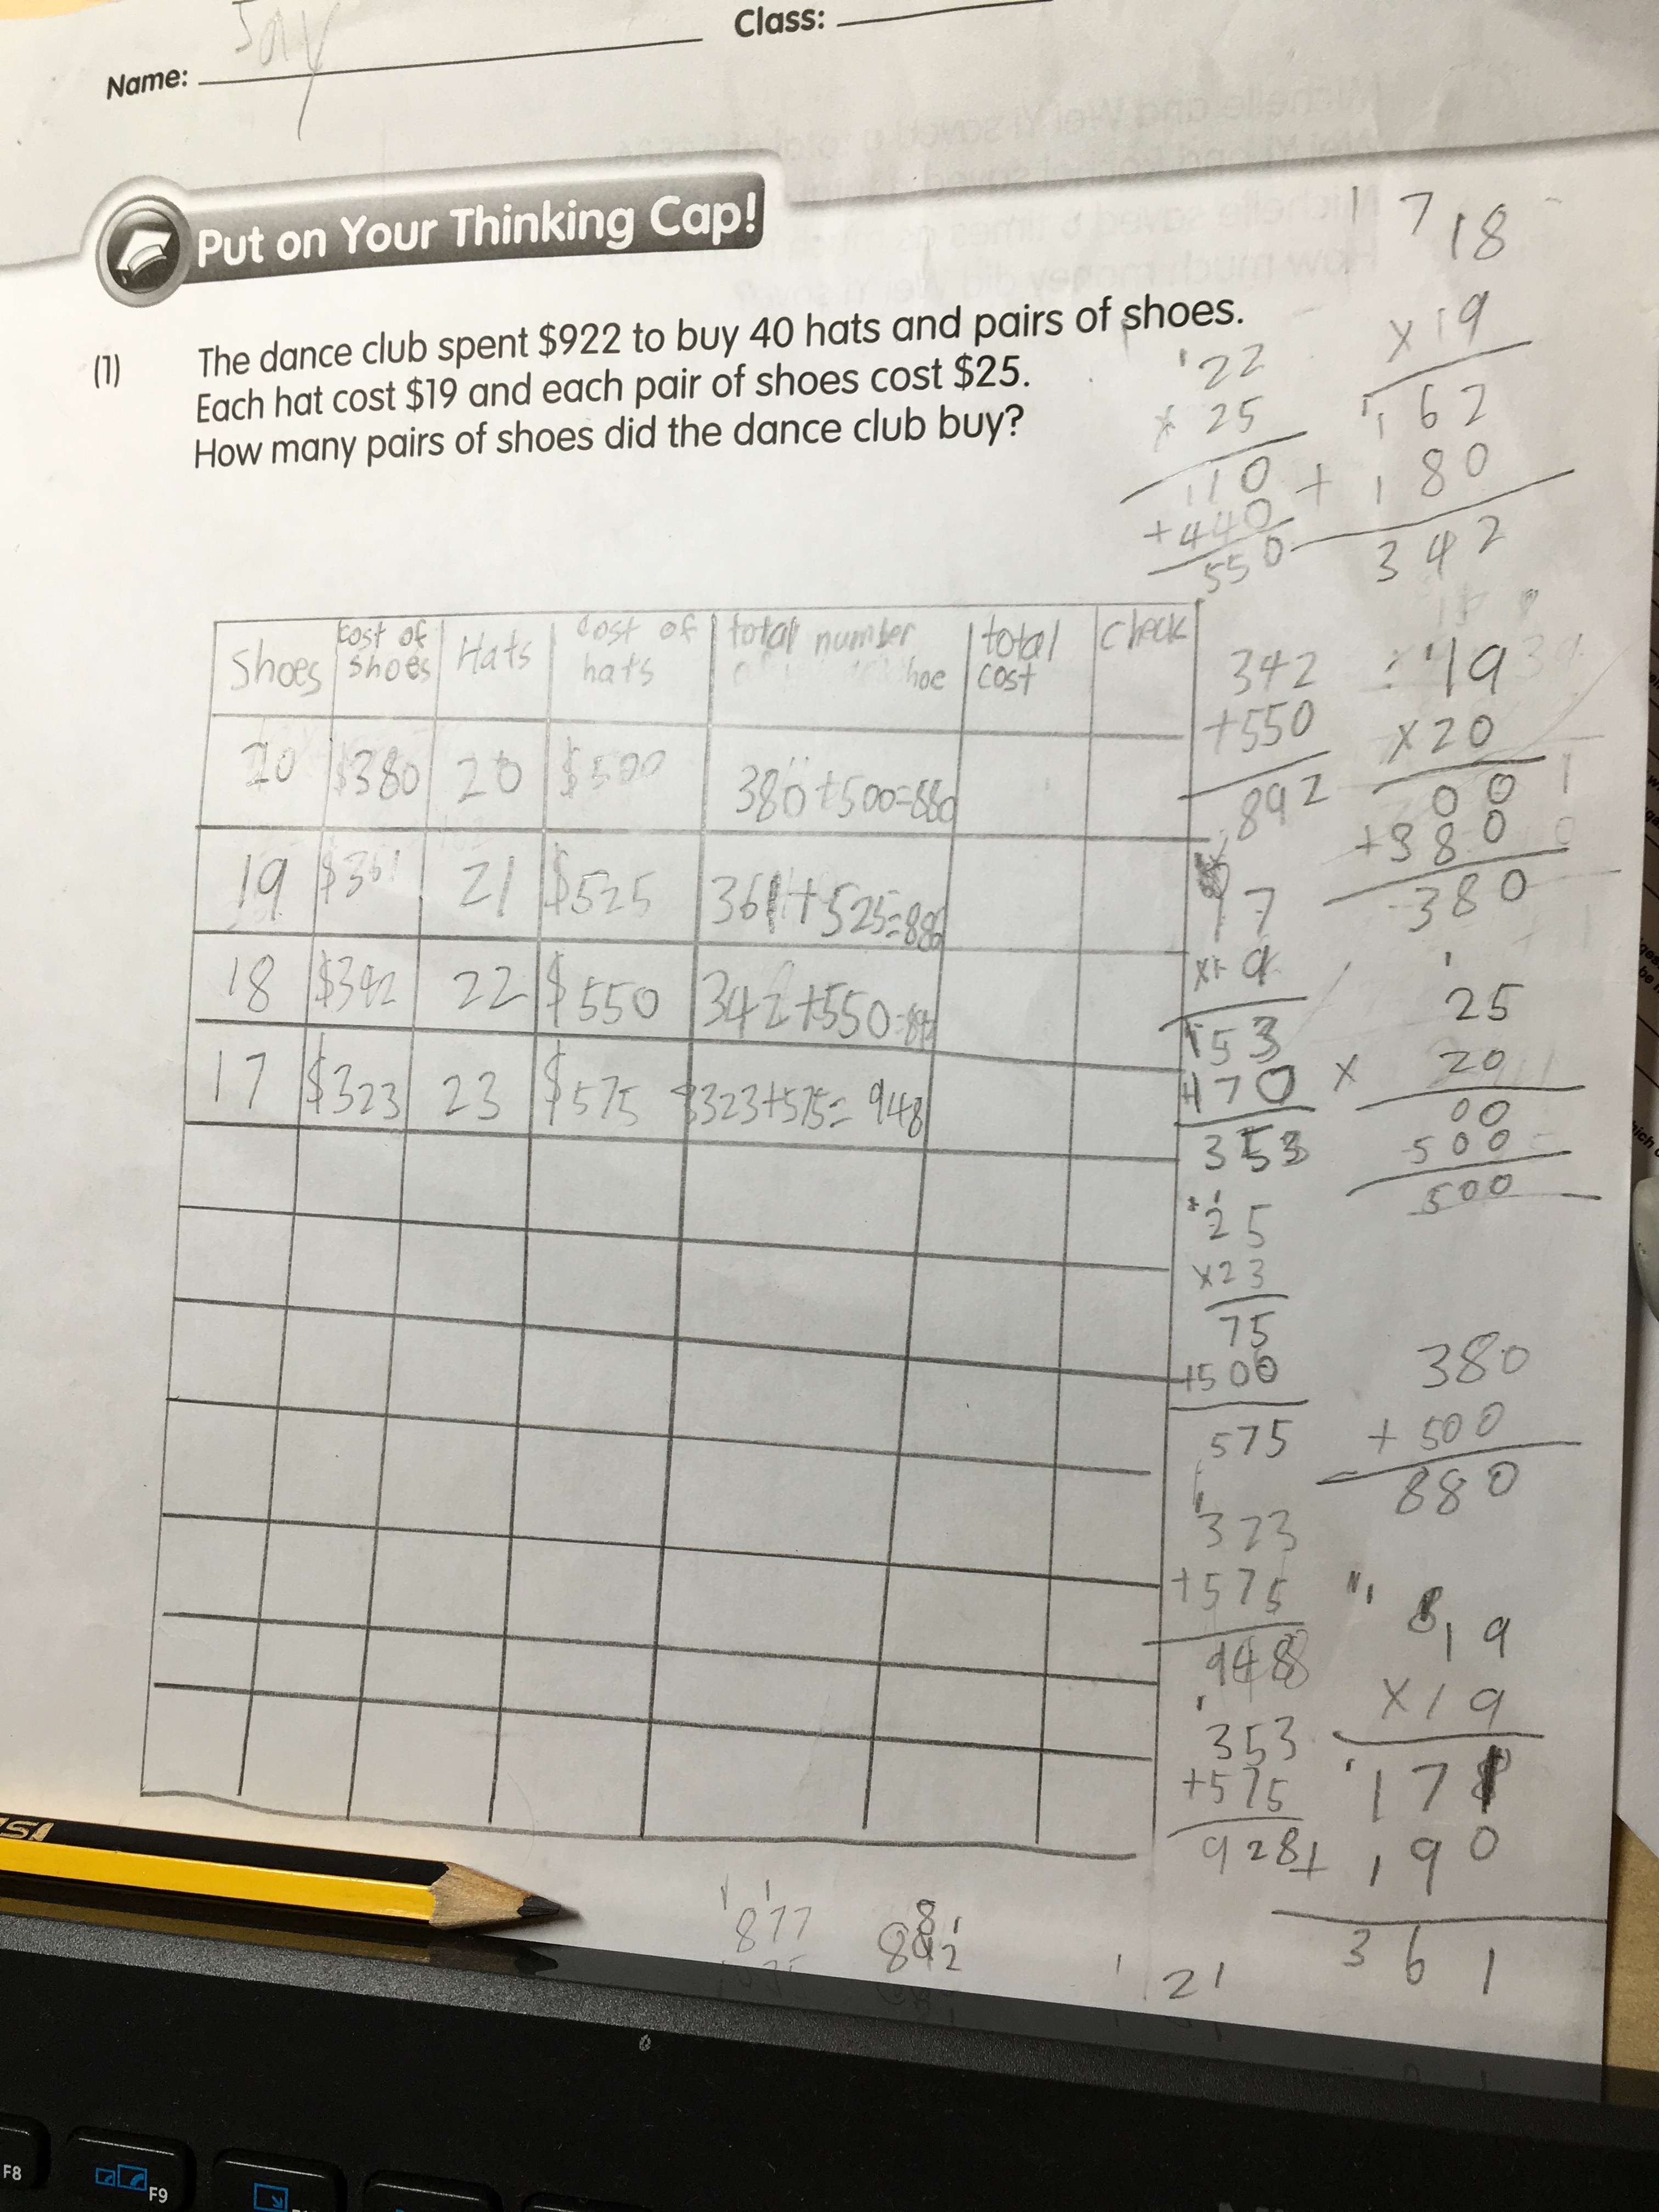 Name: Jay
Class:
Put on Your Thinking Cap!
(1) The dance club spent $922 to buy 40 hats and pairs of shoes.
Each hat cost $19 and each pair of shoes cost $25.
How many pairs of shoes did the dance club buy?
1 7 18
x 19
162
+ 180
342
22
x 25
110
+440
550
Shoes | cost of shoes | Hats | cost of hats | total number hoe | total cost | check
20 | $380 | 20 | $500 | 380+500=880
19 | $361 | 21 | $525 | 361+525=886
18 | $342 | 22 | $550 | 342+550=892
17 | $323 | 23 | $575 | 323+575= 948
342
+550
892
19
x20
00
+380
380
17
153
+170
353
25
x 20
00
500
500
25
x23
75
+500
575
380
+ 500
880
323
+575
948
353
+575
928
19
x19
171
+ 190
361
877
892
21
F8
F9